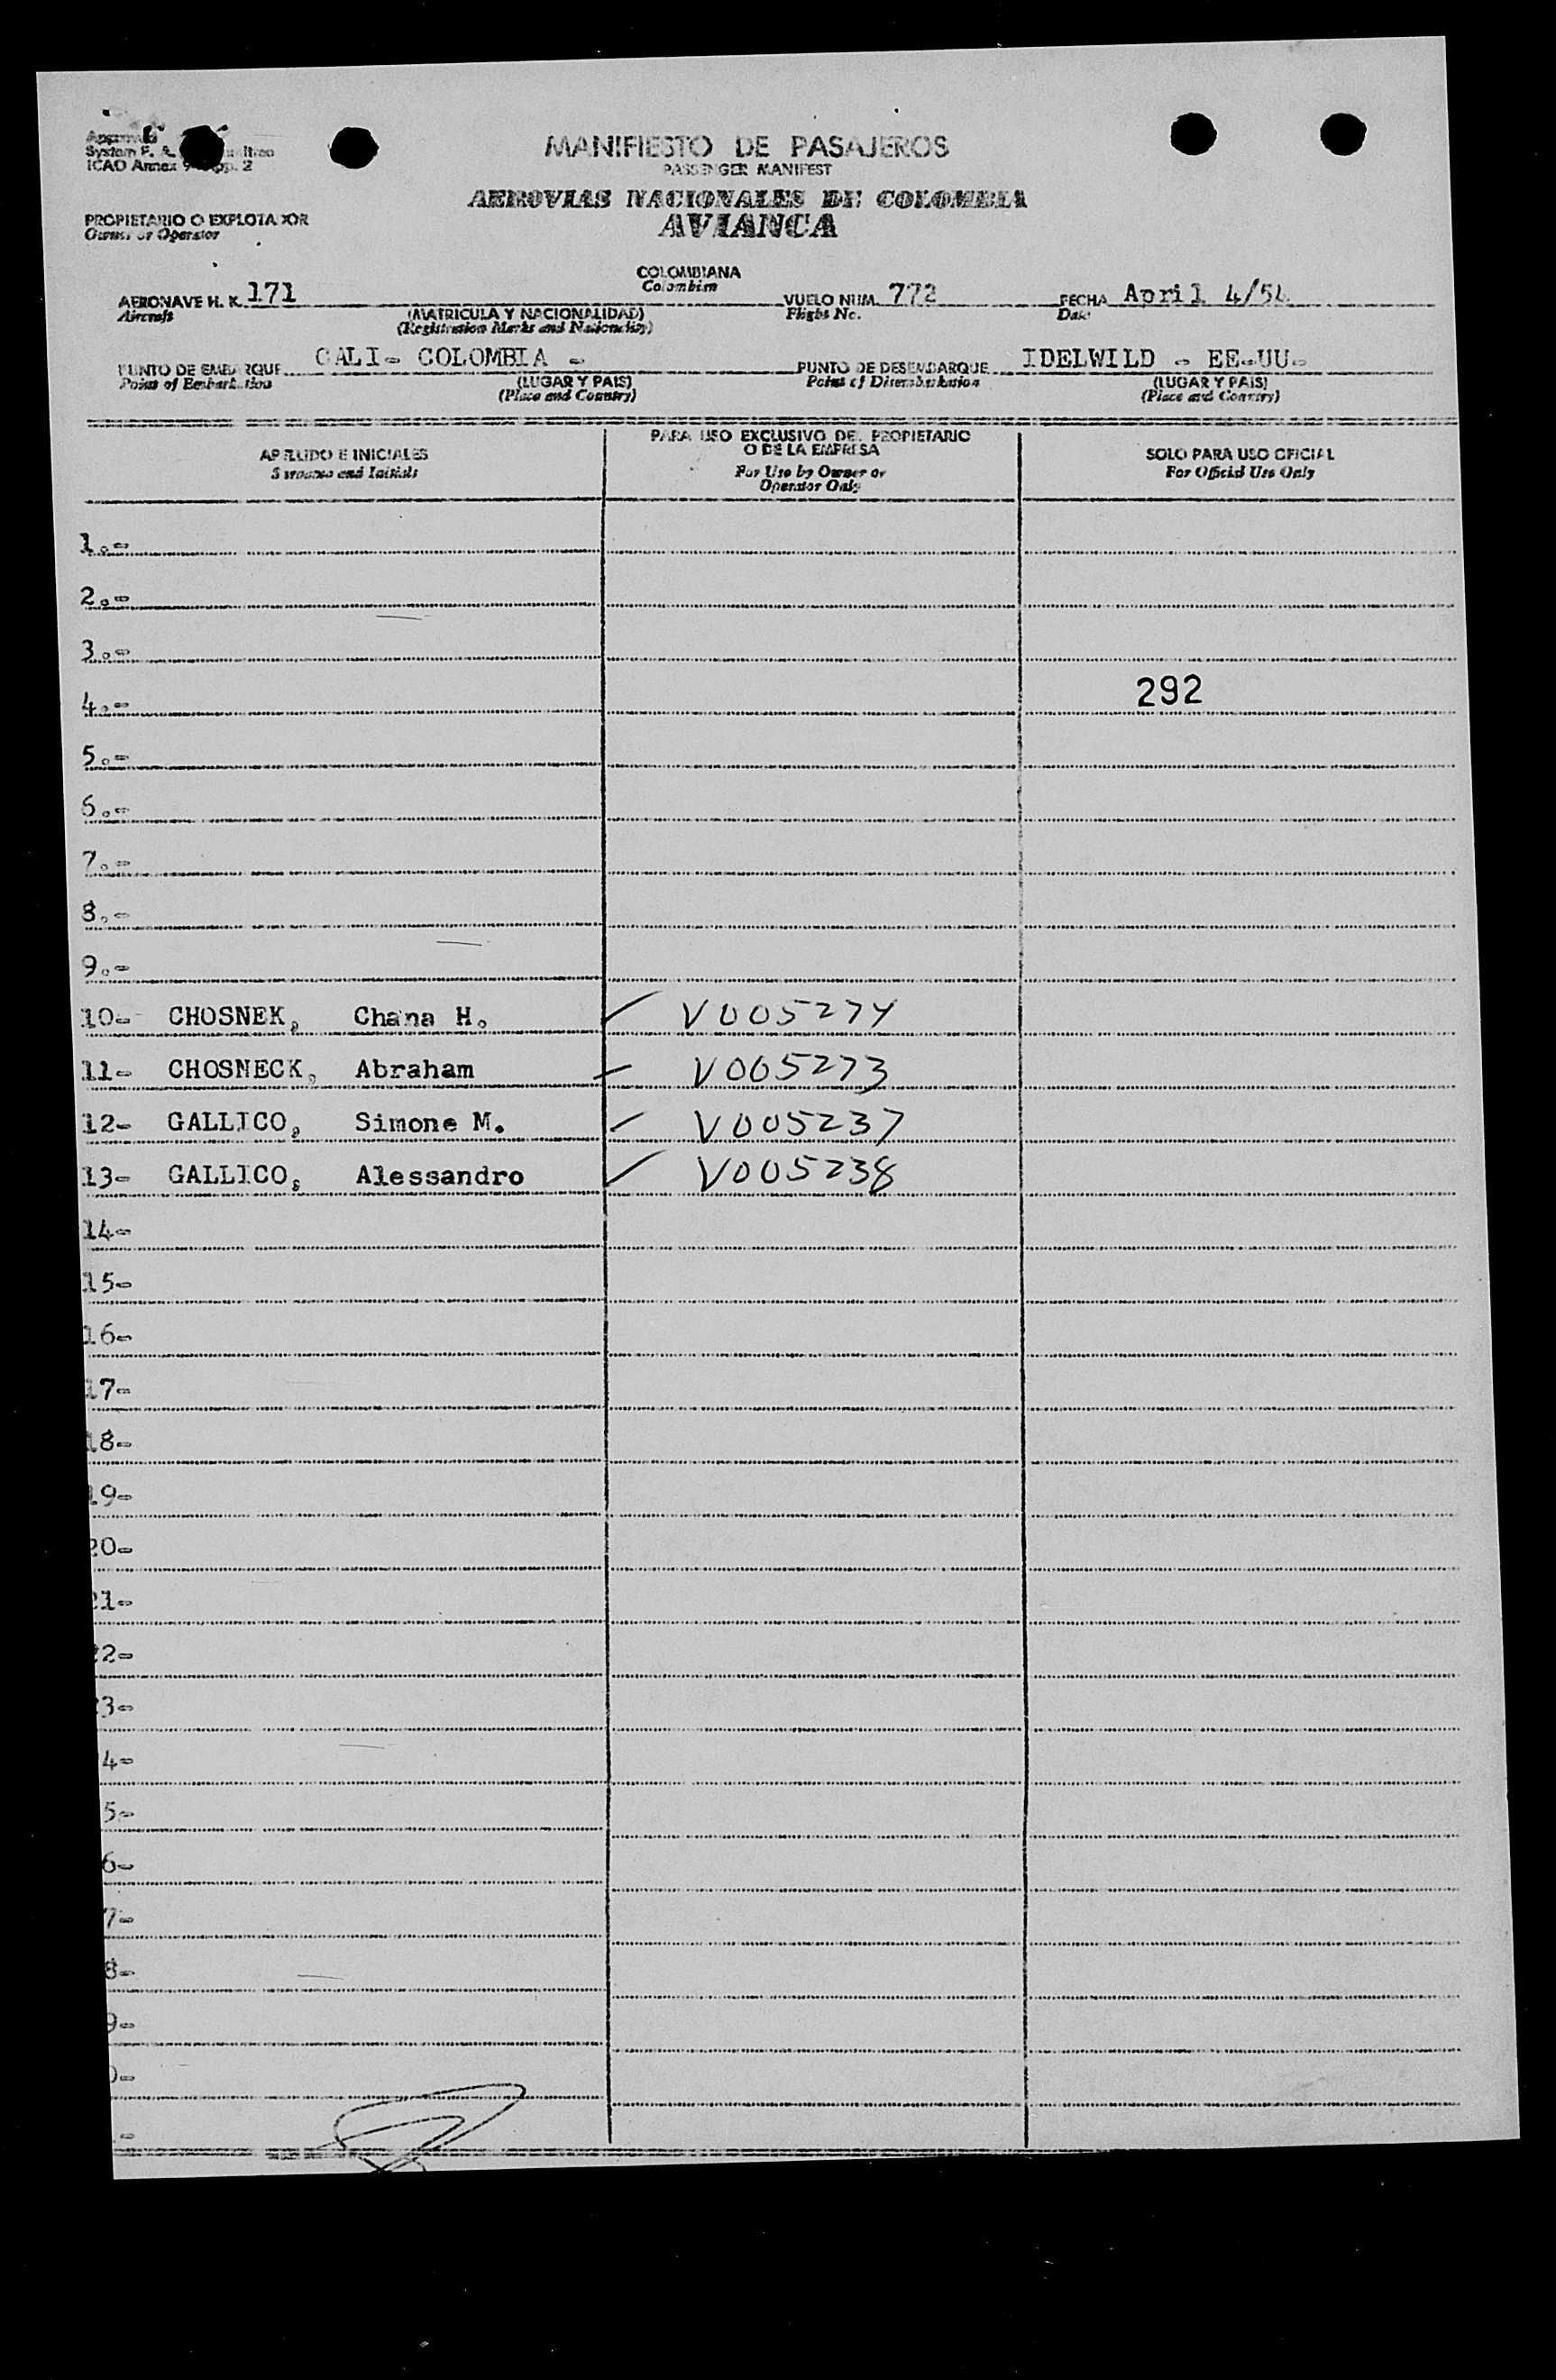 System F. A.
ICAO Annex 9 App. 2
MANIFIESTO DE PASAJEROS
PASSENGER MANIFEST
AEROVIAS NACIONALES DE COLOMBIA
AVIANCA
PROPIETARIO O EXPLOTADOR
Owner or Operator
COLOMBIANA
Colombian
AERONAVE H. K. 171 VUELO NUM. 772 FECHA April 4/54
Aircraft (MATRICULA Y NACIONALIDAD) Flight No. Date
(Registration Marks and Nationality)
PUNTO DE EMBARQUE CALI- COLOMBIA - PUNTO DE DESEMBARQUE IDELWILD - EE-UU-
Point of Embarkation (LUGAR Y PAIS) Point of Disembarkation (LUGAR Y PAIS)
(Place and Country) (Place and Country)
APELLIDO E INICIALES
Surname and Initials
PARA USO EXCLUSIVO DEL PROPIETARIO
O DE LA EMPRESA
For Use by Owner or
Operator Only
SOLO PARA USO OFICIAL
For Official Use Only
1.-
2.-
3.-
4.- 292
5.-
6.-
7.-
8.-
9.-
10- CHOSNEK, Chana H. ✓ V005274
11- CHOSNECK, Abraham ✓ V005273
12- GALLICO, Simone M. ✓ V005237
13- GALLICO, Alessandro ✓ V005238
14-
15-
16-
17-
18-
19-
20-
21-
22-
3-
4-
5-
6-
7-
8-
9-